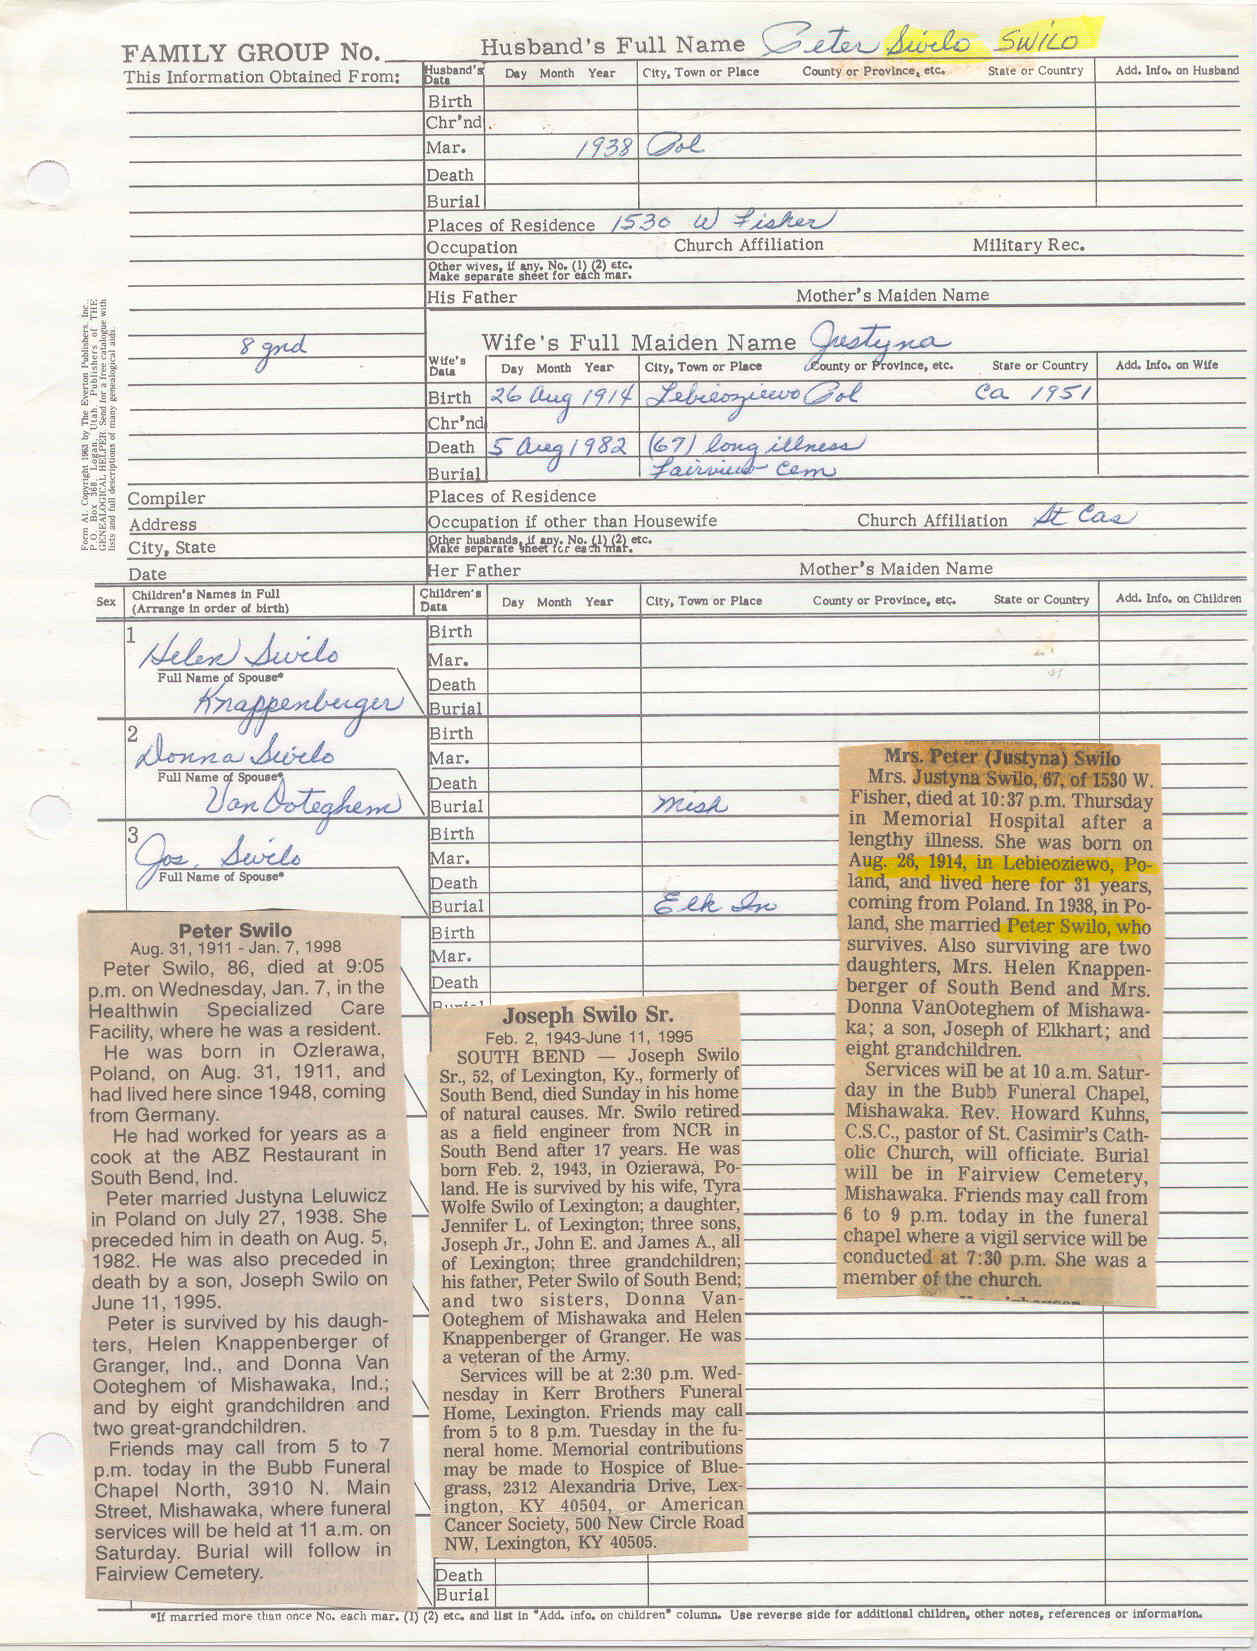 FAMILY GROUP No.
Husband's Full Name Peter Swilo SWILO
This Information Obtained From:
Husband's Data Day Month Year City, Town or Place County or Province, etc. State or Country Add. Info. on Husband
Birth
Chr'nd.
Mar. 1938 Pol
Death
Burial
Places of Residence 1530 W Fisher
Occupation Church Affiliation Military Rec.
Other wives, if any. No. (1) (2) etc.
Make separate sheet for each mar.
His Father Mother's Maiden Name
8 gnd
Wife's Full Maiden Name Justyna
Wife's Data Day Month Year City, Town or Place County or Province, etc. State or Country Add. Info. on Wife
Birth 26 Aug 1914 Lebieoziewo Pol Ca 1951
Chr'nd
Death 5 Aug 1982 (67) long illness
Burial Fairview Cem
Places of Residence
Compiler
Occupation if other than Housewife Church Affiliation St Cas
Address
Other husbands, if any. No. (1) (2) etc.
Make separate sheet for each mar.
City, State
Her Father Mother's Maiden Name
Date
Form A1. Copyright 1963 by The Everton Publishers, Inc.
P.O. Box 368, Logan, Utah. Publishers of THE
GENEALOGICAL HELPER. Send for a free catalogue with
lists and full descriptions of many genealogical aids.
Sex Children's Names in Full
(Arrange in order of birth)
Children's Data Day Month Year City, Town or Place County or Province, etc. State or Country Add. Info. on Children
1
Helen Swilo
Full Name of Spouse*
Knappenberger
Birth
Mar.
Death
Burial
2
Donna Swilo
Full Name of Spouse*
VanOoteghem
Birth
Mar.
Death
Burial Mish
3
Jos. Swilo
Full Name of Spouse*
Birth
Mar.
Death
Burial Elk In
Birth
Mar.
Death
Burial
Peter Swilo
Aug. 31, 1911 - Jan. 7, 1998
Peter Swilo, 86, died at 9:05
p.m. on Wednesday, Jan. 7, in the
Healthwin Specialized Care
Facility, where he was a resident.
He was born in Ozlerawa,
Poland, on Aug. 31, 1911, and
had lived here since 1948, coming
from Germany.
He had worked for years as a
cook at the ABZ Restaurant in
South Bend, Ind.
Peter married Justyna Leluwicz
in Poland on July 27, 1938. She
preceded him in death on Aug. 5,
1982. He was also preceded in
death by a son, Joseph Swilo on
June 11, 1995.
Peter is survived by his daugh-
ters, Helen Knappenberger of
Granger, Ind., and Donna Van
Ooteghem of Mishawaka, Ind.;
and by eight grandchildren and
two great-grandchildren.
Friends may call from 5 to 7
p.m. today in the Bubb Funeral
Chapel North, 3910 N. Main
Street, Mishawaka, where funeral
services will be held at 11 a.m. on
Saturday. Burial will follow in
Fairview Cemetery.
Joseph Swilo Sr.
Feb. 2, 1943-June 11, 1995
SOUTH BEND — Joseph Swilo
Sr., 52, of Lexington, Ky., formerly of
South Bend, died Sunday in his home
of natural causes. Mr. Swilo retired
as a field engineer from NCR in
South Bend after 17 years. He was
born Feb. 2, 1943, in Ozierawa, Po-
land. He is survived by his wife, Tyra
Wolfe Swilo of Lexington; a daughter,
Jennifer L. of Lexington; three sons,
Joseph Jr., John E. and James A., all
of Lexington; three grandchildren;
his father, Peter Swilo of South Bend;
and two sisters, Donna Van-
Ooteghem of Mishawaka and Helen
Knappenberger of Granger. He was
a veteran of the Army.
Services will be at 2:30 p.m. Wed-
nesday in Kerr Brothers Funeral
Home, Lexington. Friends may call
from 5 to 8 p.m. Tuesday in the fu-
neral home. Memorial contributions
may be made to Hospice of Blue-
grass, 2312 Alexandria Drive, Lex-
ington, KY 40504, or American
Cancer Society, 500 New Circle Road
NW, Lexington, KY 40505.
Mrs. Peter (Justyna) Swilo
Mrs. Justyna Swilo, 67, of 1530 W.
Fisher, died at 10:37 p.m. Thursday
in Memorial Hospital after a
lengthy illness. She was born on
Aug. 26, 1914, in Lebieoziewo, Po-
land, and lived here for 31 years,
coming from Poland. In 1938, in Po-
land, she married Peter Swilo, who
survives. Also surviving are two
daughters, Mrs. Helen Knappen-
berger of South Bend and Mrs.
Donna VanOoteghem of Mishawa-
ka; a son, Joseph of Elkhart; and
eight grandchildren.
Services will be at 10 a.m. Satur-
day in the Bubb Funeral Chapel,
Mishawaka. Rev. Howard Kuhns,
C.S.C., pastor of St. Casimir's Cath-
olic Church, will officiate. Burial
will be in Fairview Cemetery,
Mishawaka. Friends may call from
6 to 9 p.m. today in the funeral
chapel where a vigil service will be
conducted at 7:30 p.m. She was a
member of the church.
Death
Burial
*If married more than once No. each mar. (1) (2) etc. and list in "Add. info. on children" column. Use reverse side for additional children, other notes, references or information.